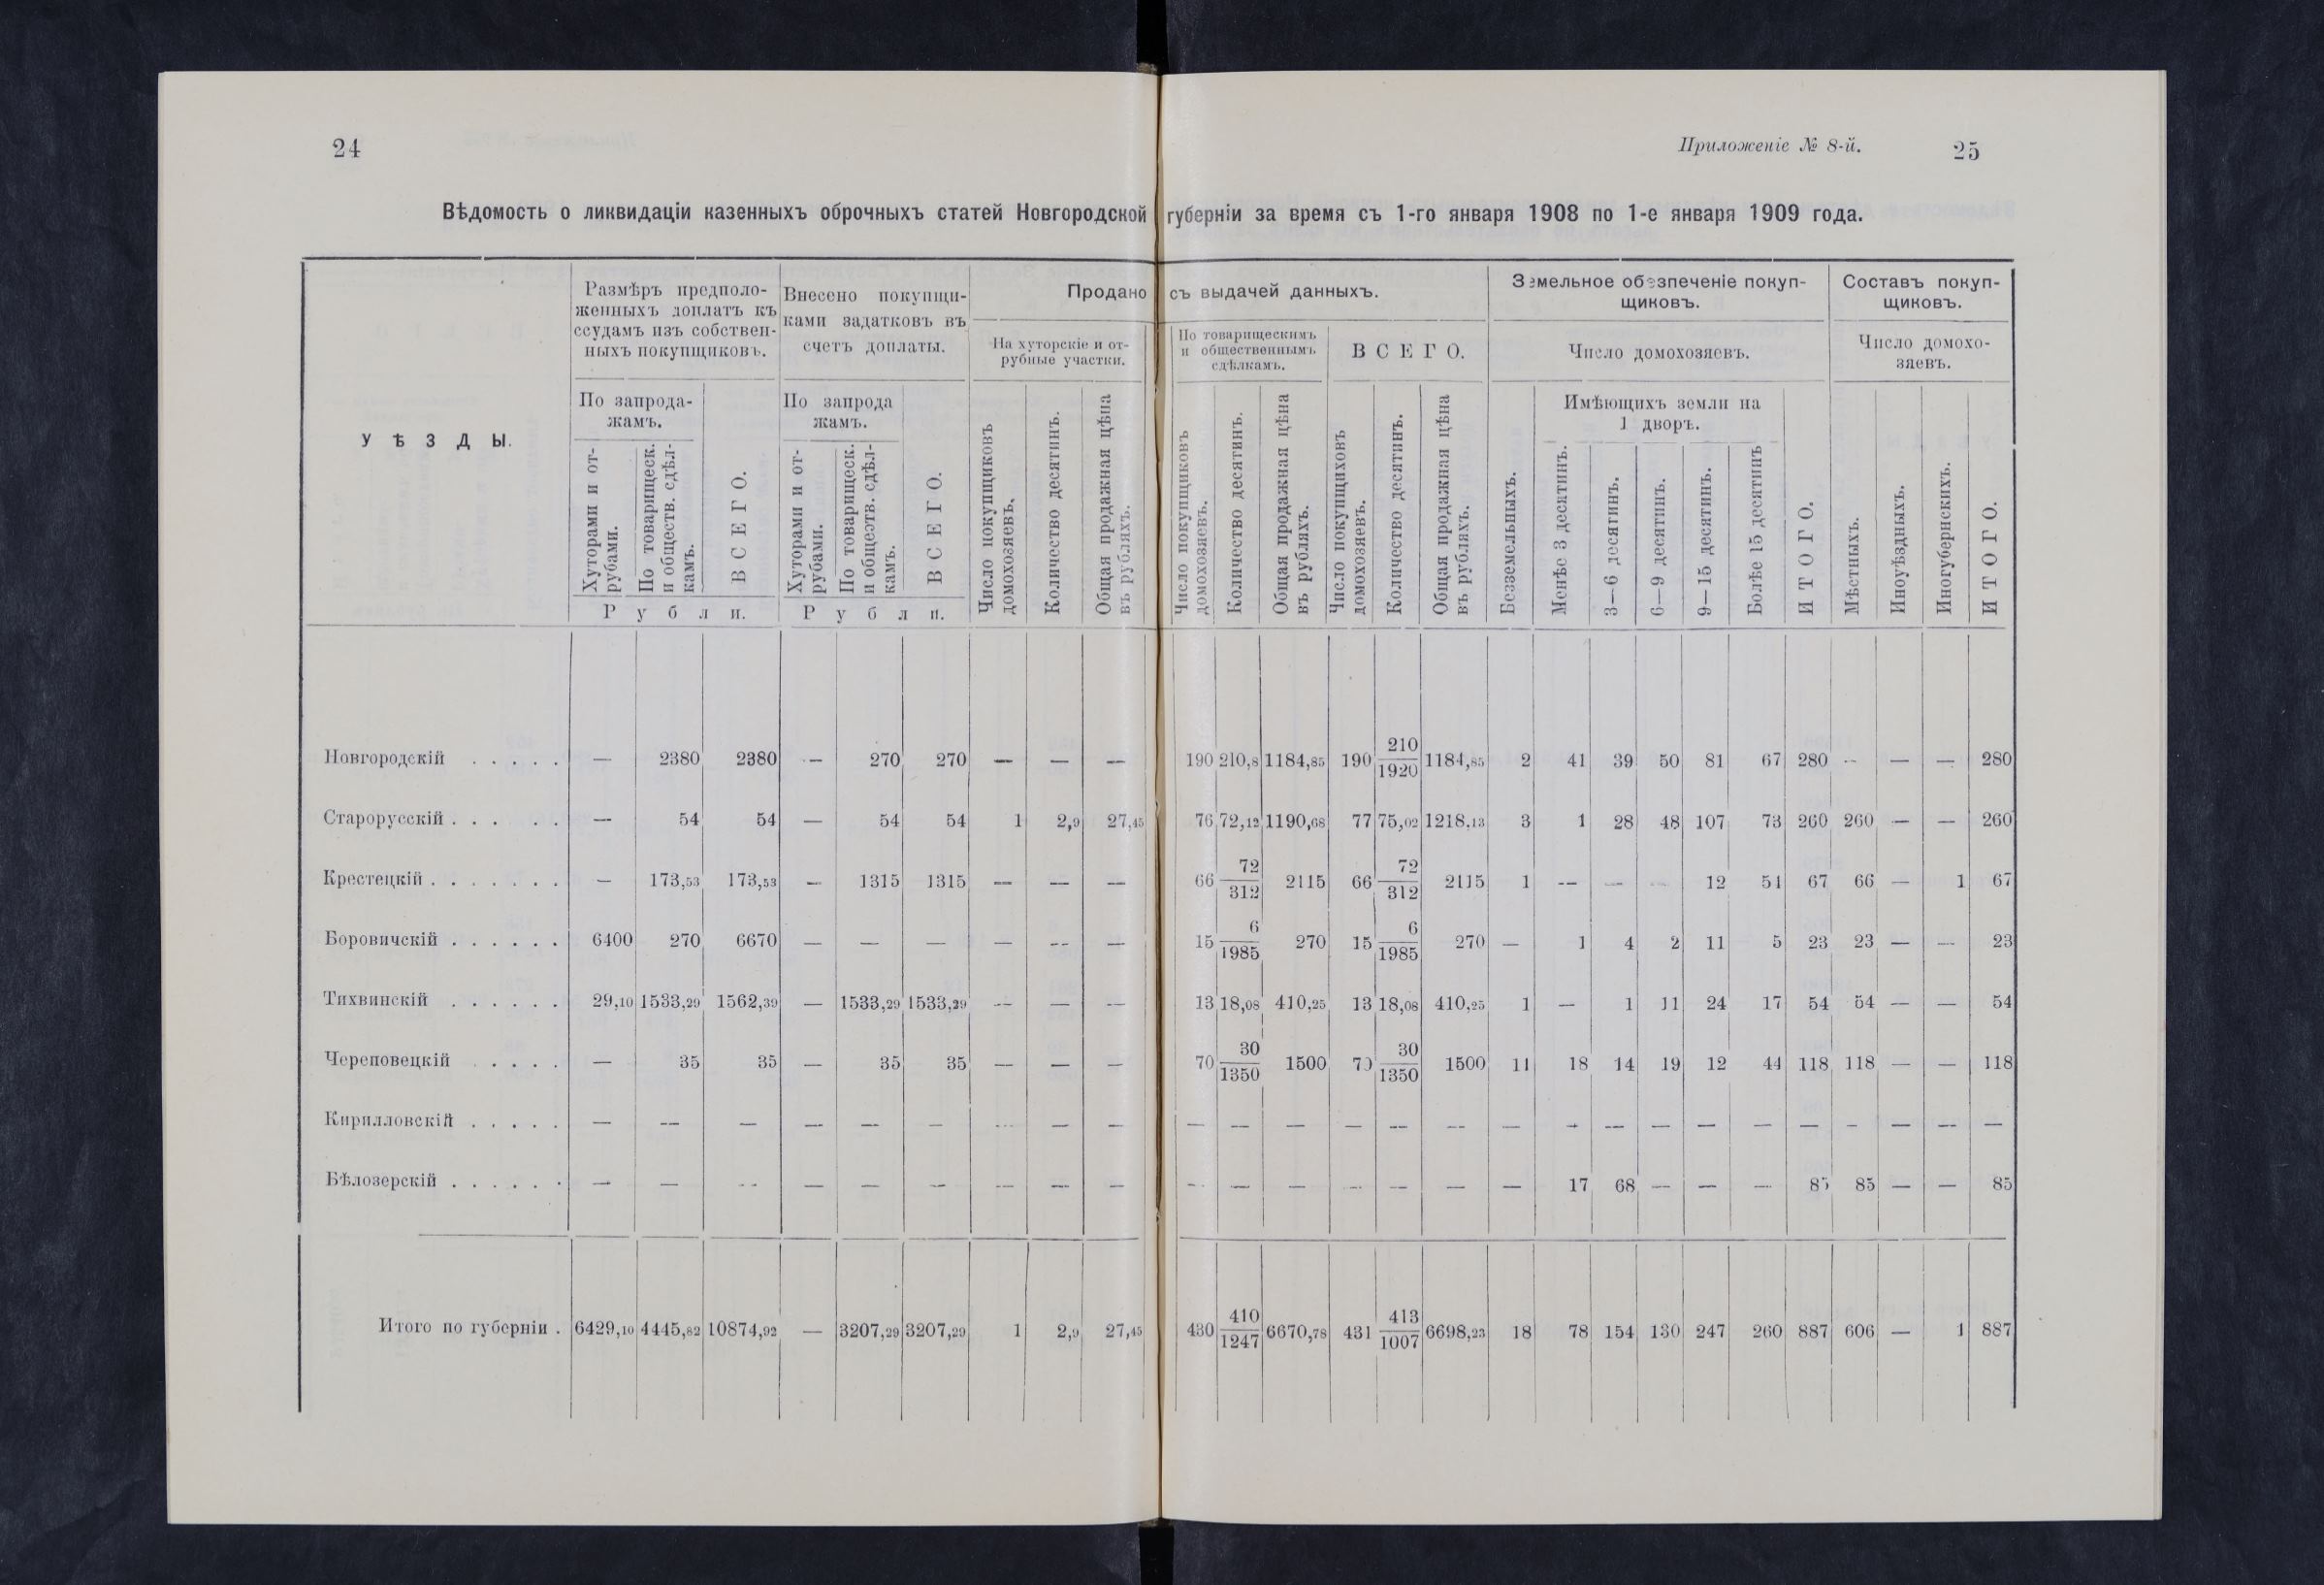 24
Приложеніе № 8-й. 25
Вѣдомость о ликвидаціи казенныхъ оброчныхъ статей Новгородской губерніи за время съ 1-го января 1908 по 1-е января 1909 года.
УѢЗДЫ.
Размѣръ предполо-
женныхъ доплатъ къ
ссудамъ изъ собствен-
ныхъ покупщиковъ.
По запрода-
жамъ.
Хуторами и от-
рубами.
По товарищеск.
и обществ. сдѣл-
камъ.
ВСЕГО.
Рубли.
Внесено покупщи-
ками задатковъ въ
счетъ доплаты.
По запрода
жамъ.
Хуторами и от-
рубами.
По товарищеск.
и общеэтв. сдѣл-
камъ.
ВСЕГО.
Рубли.
Продано съ выдачей данныхъ.
На хуторскіе и от-
рубные участки.
Число покупщиковъ
домохозяевъ.
Количество десятинъ.
Общая продажная цѣна
въ рубляхъ.
По товарищескимъ
и общественнымъ
сдѣлкамъ.
Число покупщиковъ
домохозяевъ.
Количество десятинъ.
Общая продажная цѣна
въ рубляхъ.
ВСЕГО.
Число покупщиховъ
домохозяевъ.
Количество десятинъ.
Общая продажная цѣна
въ рубляхъ.
Земельное обезпеченіе покуп-
щиковъ.
Число домохозяевъ.
Безземельныхъ.
Имѣющихъ земли на
1 дворъ.
Менѣе 3 десятинъ.
3—6 десятинъ.
6—9 десятинъ.
9—15 десятинъ.
Болѣе 15 десятинъ
ИТОГО.
Составъ покуп-
щиковъ.
Число домохо-
зяевъ.
Мѣстныхъ.
Иноуѣздныхъ.
Иногубернскихъ.
ИТОГО.
Новгородскій . . . . . — 2380 2380 — 270 270 — — — 190 210,8 1184,85 190 210/1920 1184,85 2 41 39 50 81 67 280 — — — 280
Старорусскій . . . . . — 54 54 — 54 54 1 2,9 27,45 76 72,12 1190,68 77 75,02 1218,13 3 1 28 48 107 73 260 260 — — 260
Крестецкій . . . . . . . — 173,53 173,53 — 1315 1315 — — — 66 72/312 2115 66 72/312 2115 1 — — — 12 54 67 66 — 1 67
Боровичскій . . . . . . 6400 270 6670 — — — — — — 15 6/1985 270 15 6/1985 270 — 1 4 2 11 5 23 23 — — 23
Тихвинскій . . . . . . 29,10 1533,29 1562,39 — 1533,29 1533,29 — — — 13 18,08 410,25 13 18,08 410,25 1 — 1 11 24 17 54 54 — — 54
Череповецкій . . . . . — 35 35 — 35 35 — — — 70 30/1350 1500 70 30/1350 1500 11 18 14 19 12 44 118 118 — — 118
Кирилловскій . . . . . — — — — — — — — — — — — — — — — — — — — — — — — — —
Бѣлозерскій . . . . . . — — — — — — — — — — — — — — — — 17 68 — — — 85 85 — — 85
Итого по губерніи . 6429,10 4445,82 10874,92 — 3207,29 3207,29 1 2,9 27,45 430 410/1247 6670,78 431 413/1007 6698,23 18 78 154 130 247 260 887 606 — 1 887